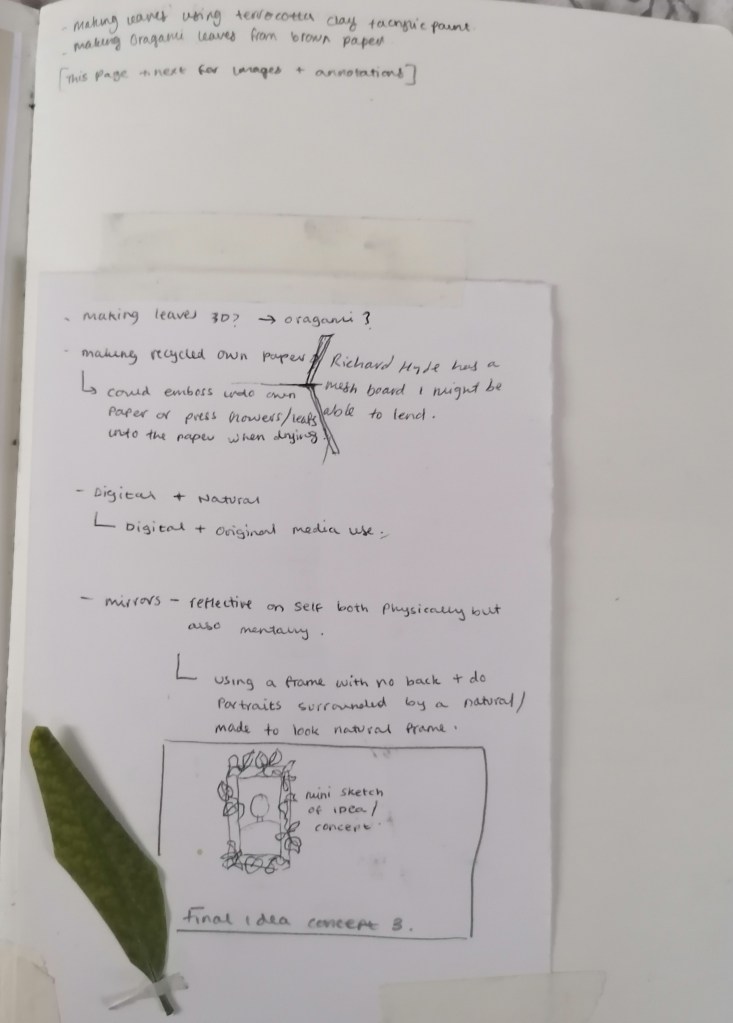 - making leaves using terrocotta clay + acrylic paint
- making oragami leaves from brown paper
[This page + next for images + annotations]
- making leaves 3D? → oragami?
- making recycled own paper
Richard Hyde has a
mesh board I might be
able to lend.
↳ could emboss into own
paper or press flowers/leafs
into the paper when drying
- Digital + Natural
Digital + original media use.
- mirrors - reflective on self both physically but
also mentally.
using a frame with no back + do
portraits surrounded by a natural/
made to look natural frame.
mini sketch
of idea/
concept
Final idea concept 3.